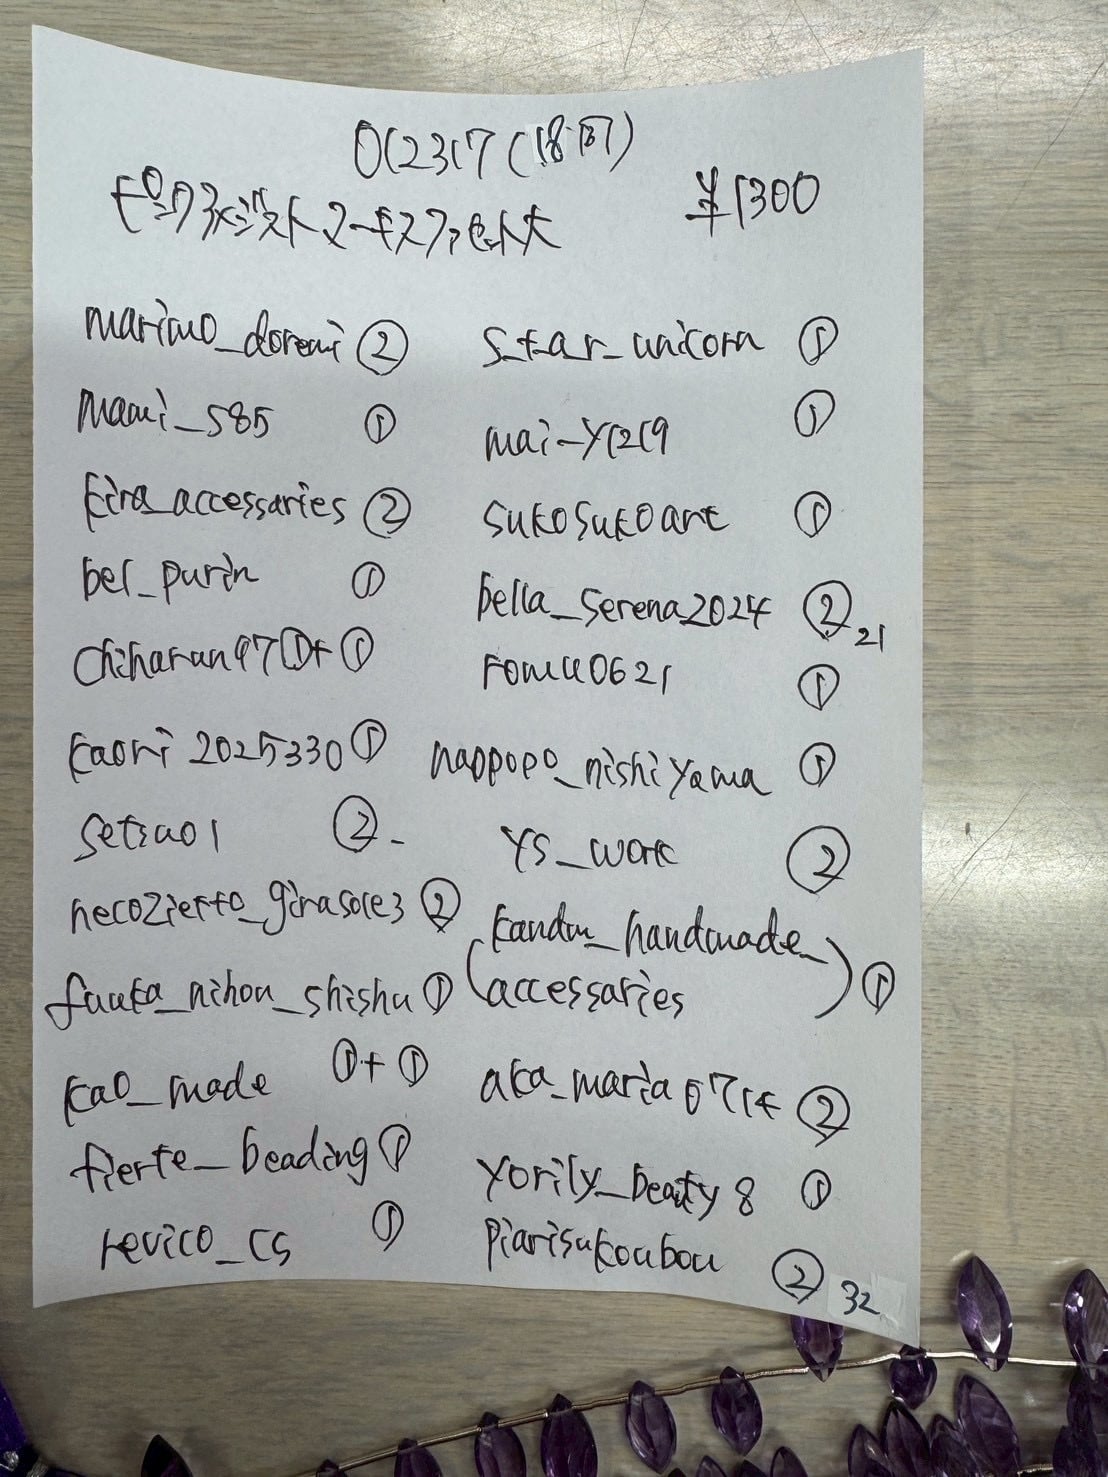 012317 (18:07)
ピンクアメジストマーキスファセット大 ¥1300
marimo_doremi ②
mami_585 ①
kira_accessaries ②
bel_purin ①
chiharun97 ①+①
kaori2025330 ①
setsuo1 ②
necozietto_girasole3 ②
fuuka_nihon_shishu ①
kao_made ①+①
fierte_beading ①
revico_cs ①
star_unicorn ①
mai-y1219 ①
sukosukoart ①
bella_serena2024 ② 21
romu0621 ①
nappopo_nishiyama ①
ys_work ②
(kandm_handmade_
accessaries) ①
aka_maria0714 ②
yorily_beauty8 ①
piarisukoubou ② 32